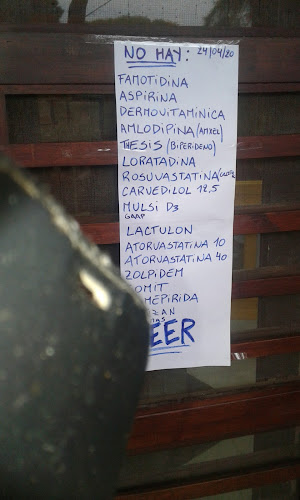 NO HAY: 24/04/20
FAMOTIDINA
ASPIRINA
DERMOVITAMINICA
AMLODIPINA (AMXEL)
THESIS (BIPERIDENO)
LORATADINA
ROSUVASTATINA
CARVEDILOL 12,5
MULSI D3
LACTULON
ATORVASTATINA 10
ATORVASTATINA 40
ZOLPIDEM
OMIT
MEPIRIDA
ZAN
EER